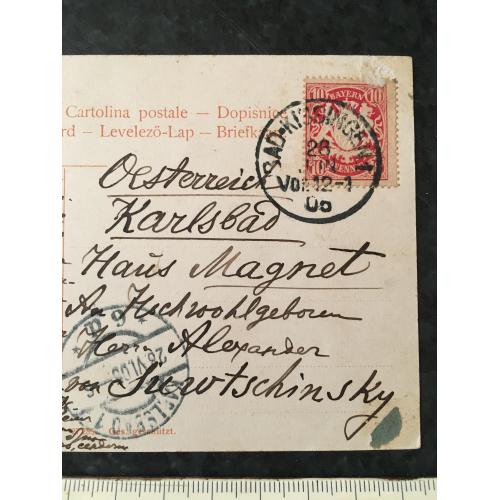 Cartolina postale — Dopisnice
rd — Levelező-Lap — Briefka
10 BAYERN 10
10 PFENNIG
BAD-KISSINGEN 1
28
Vor 12-1
05
Oesterreich
Karlsbad
Haus Magnet
An Hochwohlgeboren
Herrn Alexander
von Suwtschinsky
28.VI.05
Ges. geschützt.